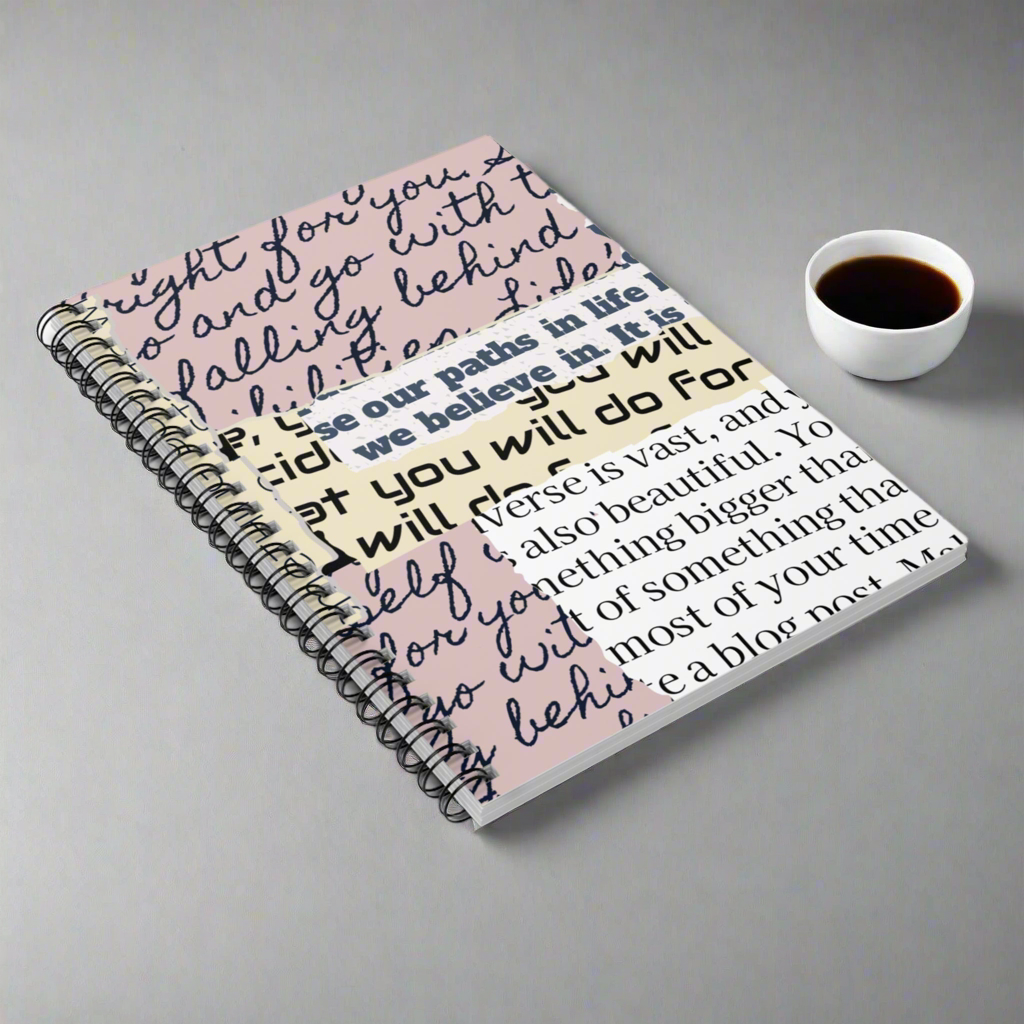 right for you.
and go with
falling behind
se our paths in life
we believe in It is
you will
at you will do for
will do f
verse is vast, and y
also beautiful. Yo
mething bigger tha
t of something tha
most of your time
e a blog post. Mel
self
for you
go with
behin